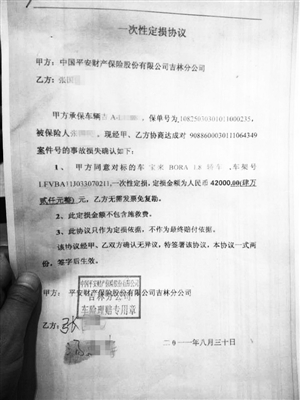 一次性定损协议
甲方：中国平安财产保险股份有限公司吉林分公司
乙方：张国
甲方承保车辆吉A 保单号为10825030301011000235，
被保险人张 。现经甲、乙方协商达成对9088600030111064349
案件号的事故损失确认如下：
1、甲方同意对标的车 宝来 BORA 1.8 轿车，车架号
LFVBA11J033070211，一次性定损，定损金额为人民币42000.00(肆万
贰仟元整) 元，乙方无需发票免复勘。
2、此定损金额不包含施救费。
3、此协议只作为定损依据，不作为最终赔付依据。
该协议经甲、乙双方确认无异议，特签署该协议。本协议一式两
份，签字后生效。
甲方：平安财产保险股份有限公司吉林分公司
中国平安财产保险股份有限公司
吉林分公司
车险理赔专用章
乙方：张
二0一一年八月三十日